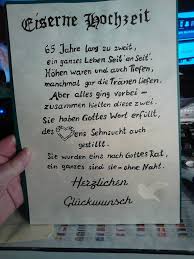 Eiserne Hochzeit
65 Jahre lang zu zweit,
ein ganzes Leben Seit' an Seit'.
Höhen waren und auch Tiefen,
manchmal gar die Tränen liefen.
Aber alles ging vorbei -
zusammen hielten diese zwei.
Sie haben Gottes Wort erfüllt,
des ens Sehnsucht auch
gestillt.
Sie wurden eins nach Gottes Rat,
ein ganzes sind sie - ohne Naht.
Herzlichen
Glückwunsch